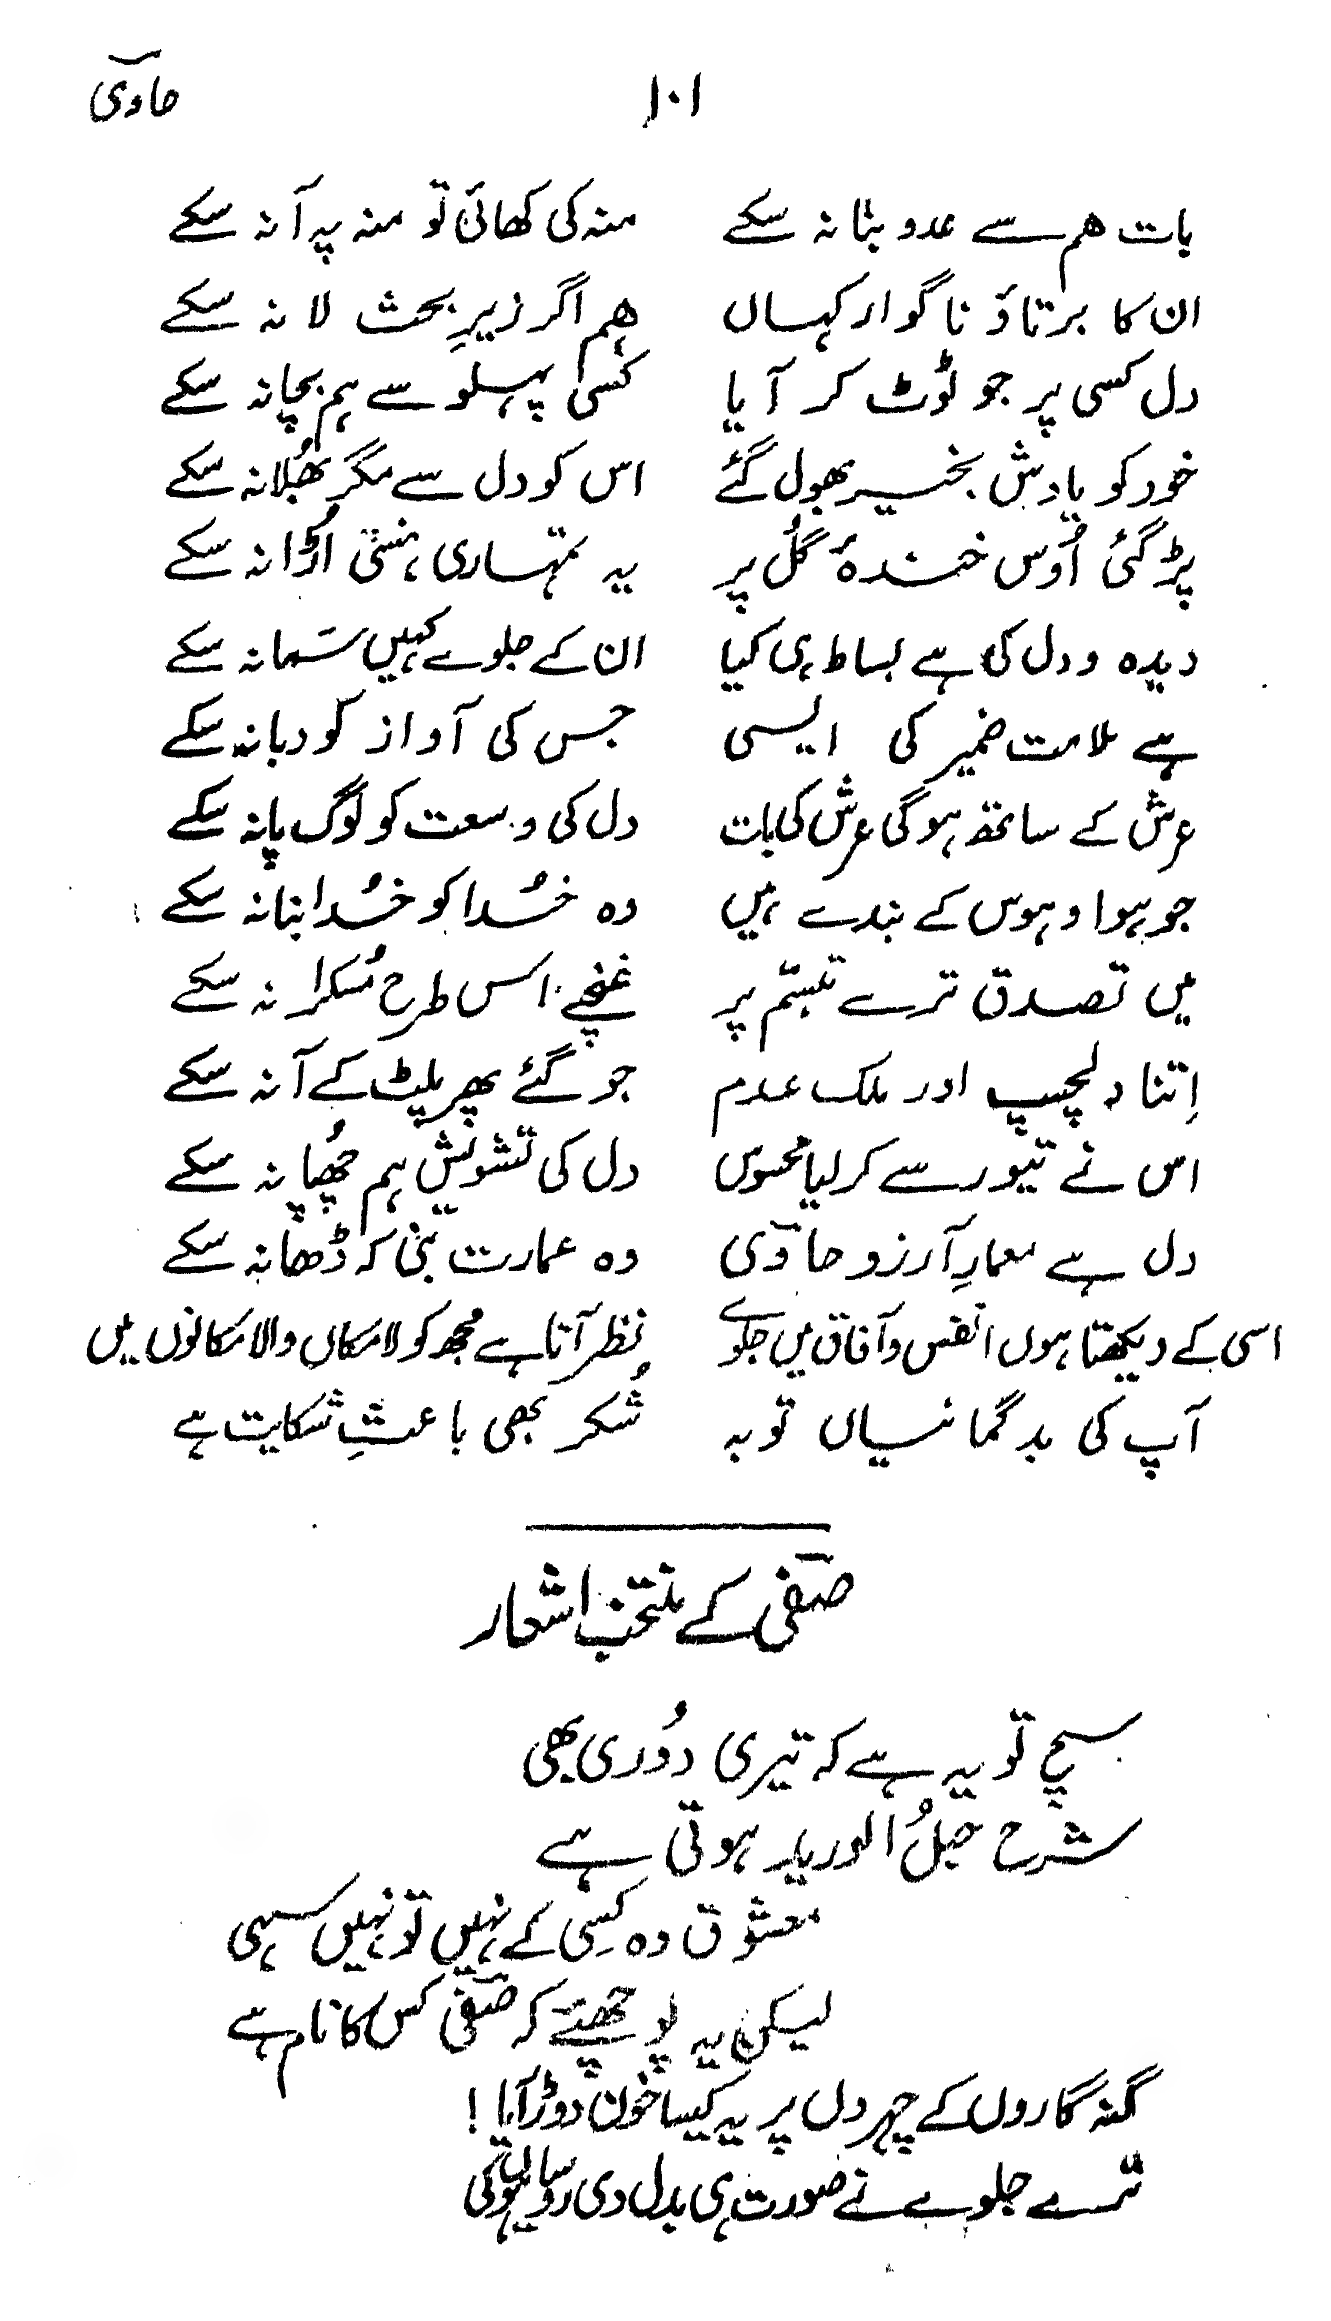 ۱۰۱ حاویؔ
بات ہم سے عدو بنا نہ سکے منہ کی کھائی تو منہ پہ آ نہ سکے
ان کا برتاؤ نا گوار کہاں ہم اگر زیرِ بحث لا نہ سکے
دل کسی پر جو ٹوٹ کر آیا کسی پہلو سے ہم بچا نہ سکے
خود کو یادش بخیر بھول گئے اس کو دل سے مگر بھُلا نہ سکے
پڑ گئی اُوس خندۂ گُل پر یہ تمہاری ہنسی اُڑا نہ سکے
دیدہ و دل کی ہے بساط ہی کیا ان کے جلوے کہیں سَما نہ سکے
ہے ملامت ضمیر کی ایسی جس کی آواز کو دبا نہ سکے
عرش کے ساتھ ہوگی عرش کی بات دل کی وسعت کو لوگ پا نہ سکے
جو ہوا و ہوس کے بندے ہیں وہ خُدا کو خُدا بنا نہ سکے
میں تصدق ترے تبسّم پر غنچے اس طرح مُسکرا نہ سکے
اِتنا دلچسپ اور ملک عدم جو گئے پھر پلیٹ کے آ نہ سکے
اس نے تیور سے کر لیا محسوس دل کی تشویش ہم چھُپا نہ سکے
دل ہے معمارِ آرزو حاویؔ وہ عمارت بنی کہ ڈھا نہ سکے
اسی کے دیکھتا ہوں انفس و آفاق میں جلوے نظر آتا ہے مجھ کو لامکاں والا مکانوں میں
آپ کی بدگمانیاں توبہ شُکر بھی باعثِ شکایت ہے
صفیؔ کے منتخب اشعار
سچ تو یہ ہے کہ تیری دُوری بھی
شرح حبلُ الورید ہوتی ہے
معشوق وہ کِسی کے نہیں تو نہیں سہی
لیکن یہ پوچھئے کہ صفیؔ کس کا نام ہے
گنہ گاروں کے چہروں پر یہ کیسا خون دوڑ آیا !
ترے جلوے نے صورت ہی بدل دی رو سیاہوں کی